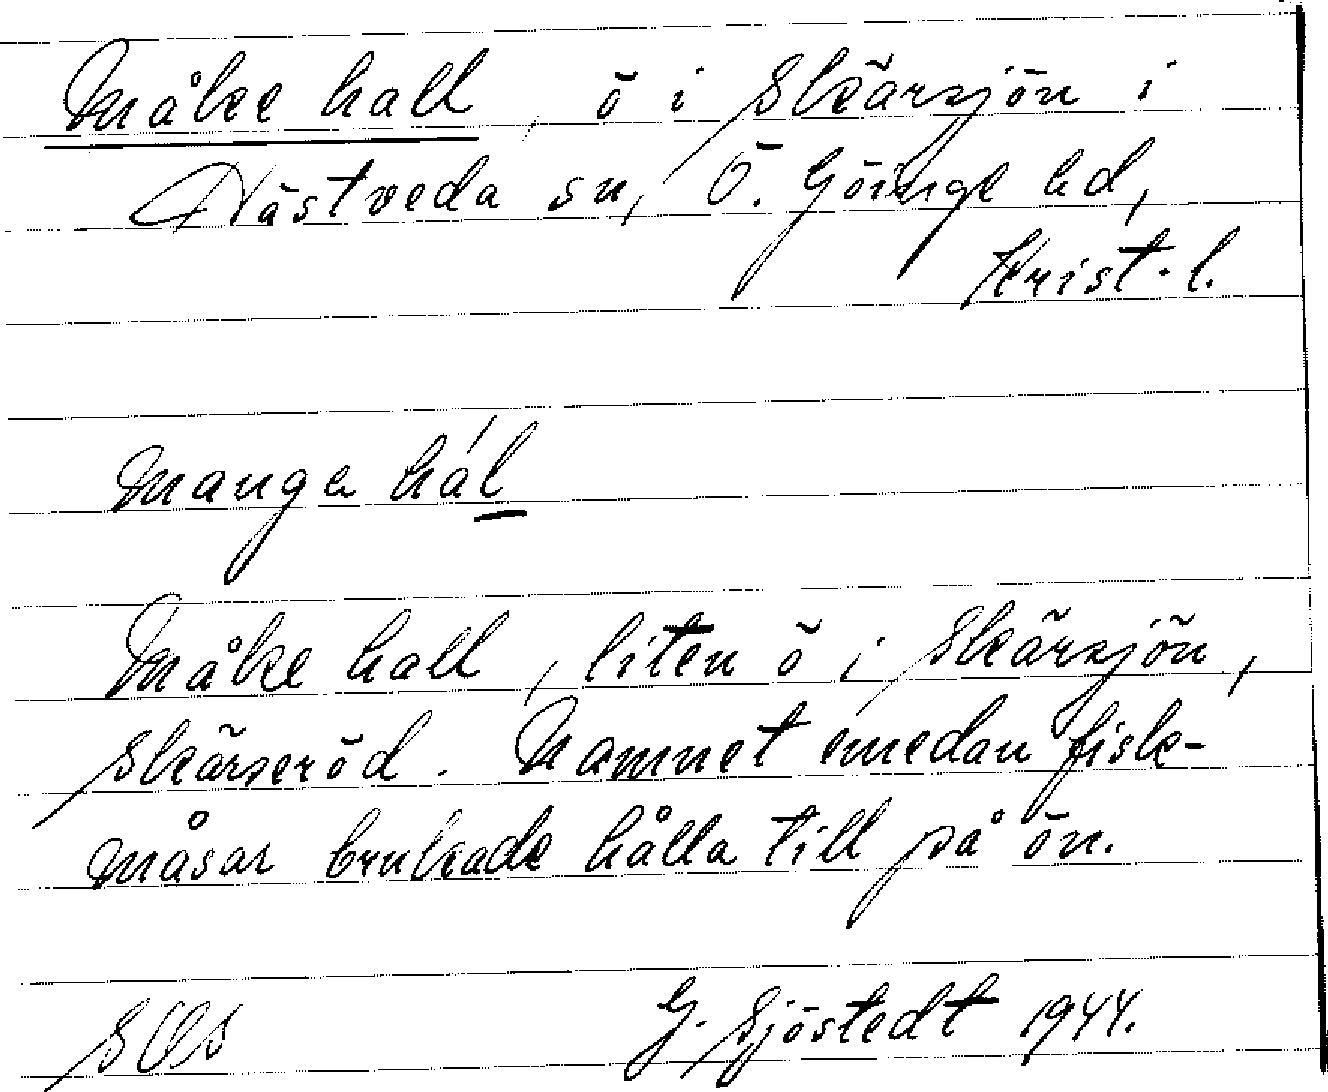 Måke hall, ö i Skärsjön i
Hästveda sn, Ö. Göinge hd,
Krist. l.
mauga hál
Måke hall, liten ö i Skärsjön,
Skärseröd. Namnet emedan fisk-
måsar brukade hålla till på ön.
SOs G. Sjöstedt 1944.